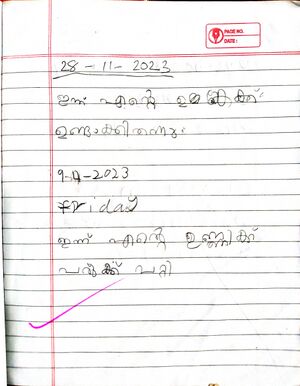 PAGE NO.
DATE:
28-11-2023
ഇന്ന് എന്റെ ഉമ്മ
ഉണ്ടാക്കിതന്നു.
9-11-2023
friday
ഇന്ന് എന്റെ ഉണ്ണിക്ക്
പരുക്ക് പറ്റി